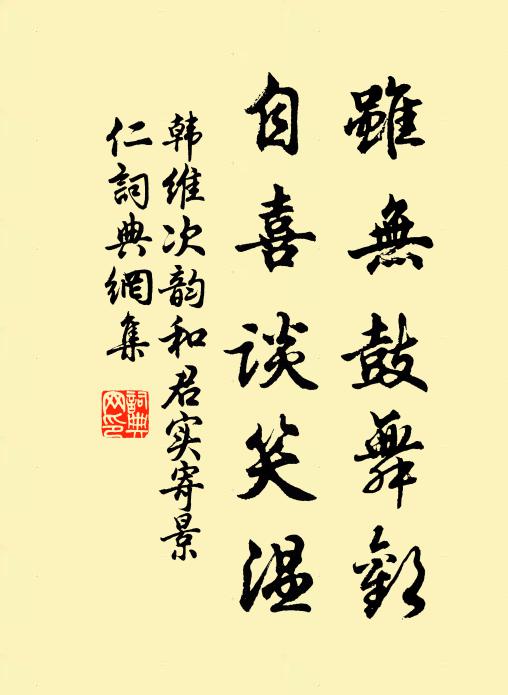 雖無鼓舞歡
自喜談笑温
韩維次韵和君实寄景
仁詞典網集
詞典網印